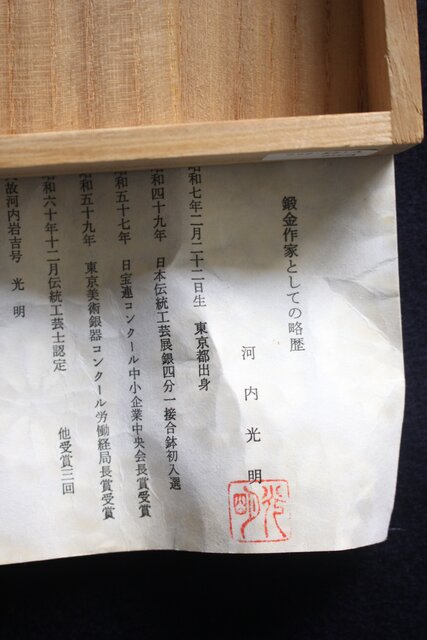 鍛金作家としての略歴
河内光明
昭和七年二月二十二日生　東京都出身
昭和四十九年　日本伝統工芸展銀四分一接合鉢初入選
昭和五十七年　日宝連コンクール中小企業中央会長賞受賞
昭和五十九年　東京美術銀器コンクール労働経局長賞受賞
昭和六十年十二月伝統工芸士認定　他受賞三回
故河内岩吉号　光明
光明